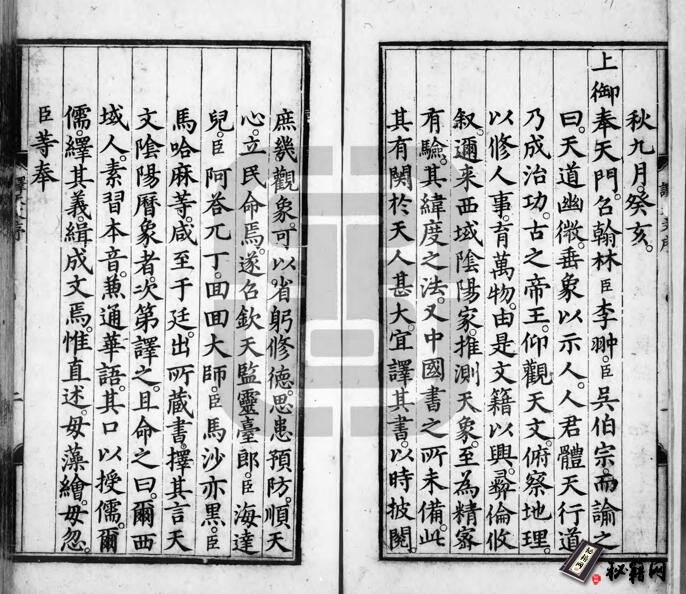 秋九月。癸亥。
上御奉天門。召翰林臣李翀。臣吳伯宗。而諭之
曰。天道幽微。垂象以示人。人君體天行道。
乃成治功。古之帝王。仰觀天文。俯察地理。
以修人事。育萬物。由是文籍以興。彞倫攸
叙。邇來西域陰陽家。推測天象。至為精密
有驗。其緯度之法。又中國書之所未備。此
其有関於天人甚大。宜譯其書。以時披閱。
庶幾觀象。可以省躬修德。思患預防。順天
心。立民命焉。遂召欽天監靈臺郎。臣海達
兒。臣阿荅兀丁。囬囬大師。臣馬沙亦黑。臣
馬哈麻等。咸至于廷。出所藏書。擇其言天
文陰陽曆象者。次第譯之。且命之曰。爾西
域人。素習本音。兼通華語。其口以授儒。爾
儒。繹其義。緝成文焉。惟直述。毋藻繪。毋忽。
臣等奉
秘籍网